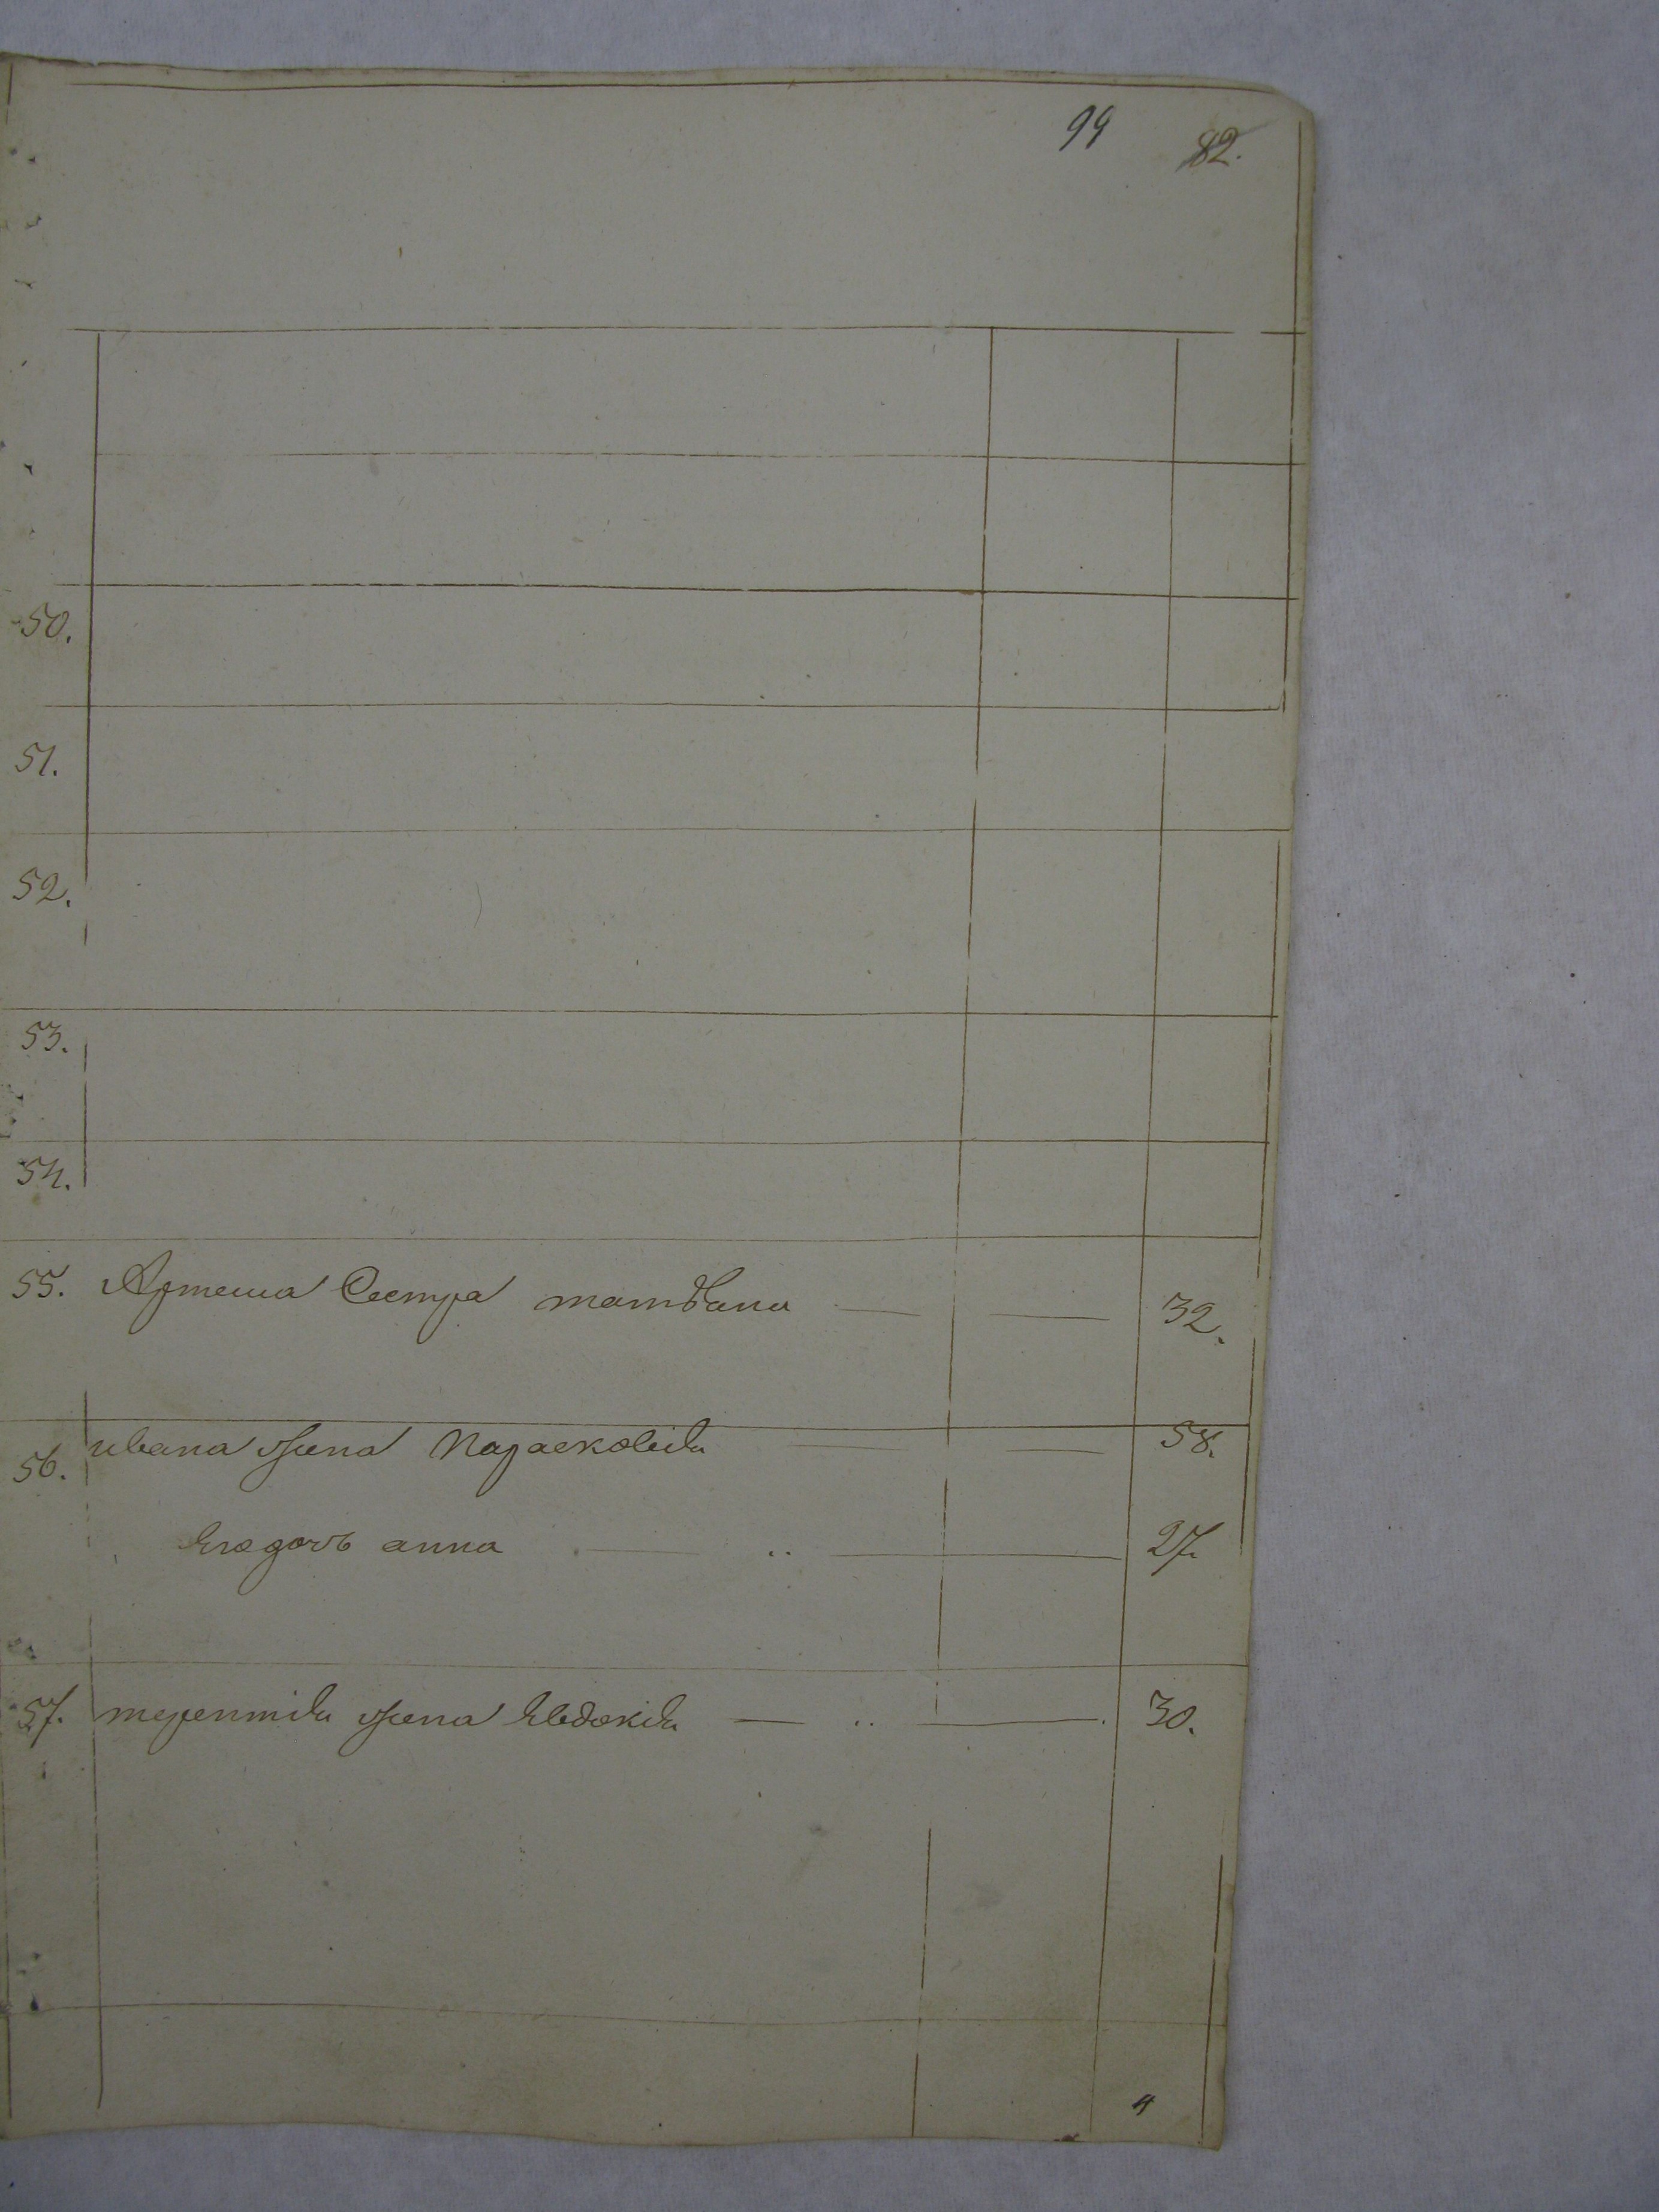 99 82.
50.
51.
52.
53.
54.
55. Артема Сестра татьяна 32.
56. ивана жена Парасковья 58.
Его дочь анна 27.
57. терентия жена Евдокия 30.
4